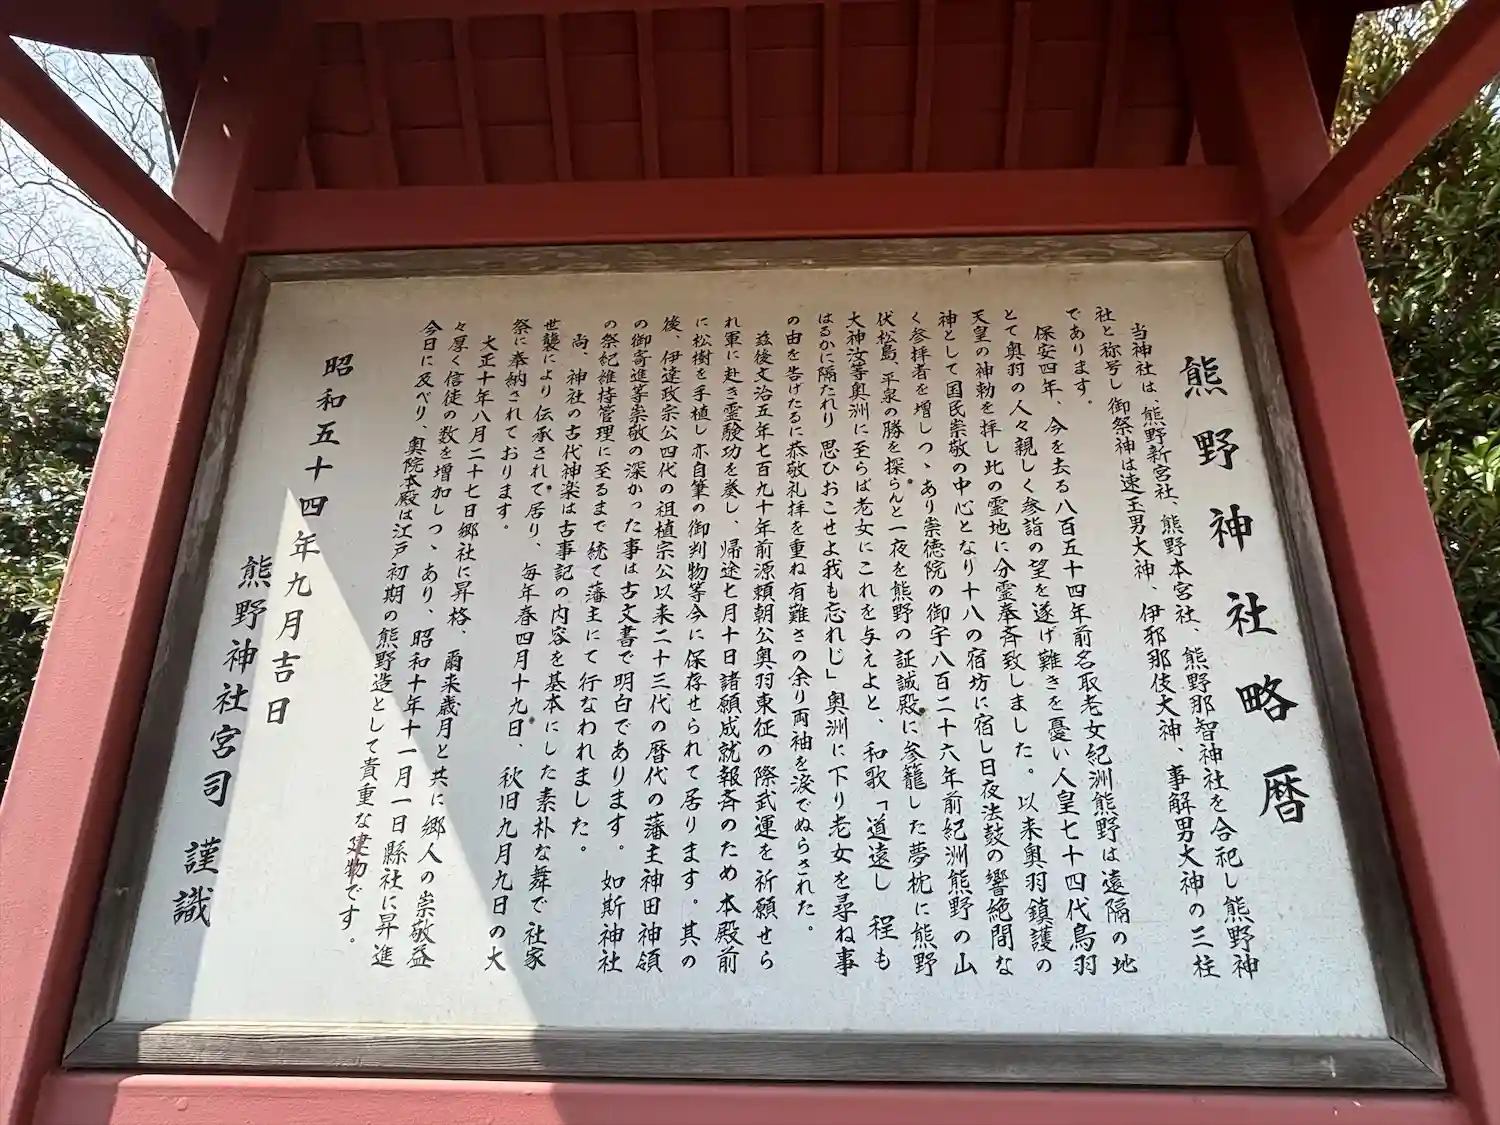 熊野神社略暦
当神社は、熊野新宮社、熊野本宮社、熊野那智神社を合祀し熊野神
社と称号し御祭神は速玉男大神、伊邪那伎大神、事解男大神の三柱
であります。
保安四年、今を去る八百五十四年前名取老女紀洲熊野は遠隔の地
とて奥羽の人々親しく参詣の望を遂げ難きを憂い人皇七十四代鳥羽
天皇の神勅を拝し此の霊地に分霊奉斉致しました。以来奥羽鎮護の
神として国民崇敬の中心となり十八の宿坊に宿し日夜法鼓の響絶間な
く参拝者を増しつヽあり崇徳院の御宇八百二十六年前紀洲熊野の山
伏松島、平泉の勝を探らんと一夜を熊野の証誠殿に参籠した夢枕に熊野
大神汝等奥洲に至らば老女にこれを与えよと、和歌「道遠し 程も
はるかに隔たれり 思ひおこせよ我も忘れじ」奥洲に下り老女を尋ね事
の由を告げたるに恭敬礼拝を重ね有難さの余り両袖を涙でぬらされた。
玆後文治五年七百九十年前源頼朝公奥羽東征の際武運を祈願せら
れ軍に赴き霊験功を奏し、帰途七月十日諸願成就報斉のため本殿前
に松樹を手植し亦自筆の御判物等今に保存せられて居ります。其の
後、伊達政宗公四代の祖植宗公以来二十三代の暦代の藩主神田神領
の御寄進等崇敬の深かった事は古文書で明白であります。如斯神社
の祭紀維持管理に至るまで統て藩主にて行なわれました。
尚、神社の古代神楽は古事記の内容を基本にした素朴な舞で社家
世襲により伝承されて居り、毎年春四月十九日、秋旧九月九日の大
祭に奉納されております。
大正十年八月二十七日郷社に昇格、爾来歳月と共に郷人の崇敬益
々厚く信徒の数を増加しつヽあり、昭和十年十一月一日縣社に昇進
今日に及べり、奥院本殿は江戸初期の熊野造として貴重な建物です。
昭和五十四年九月吉日
熊野神社宮司 謹識